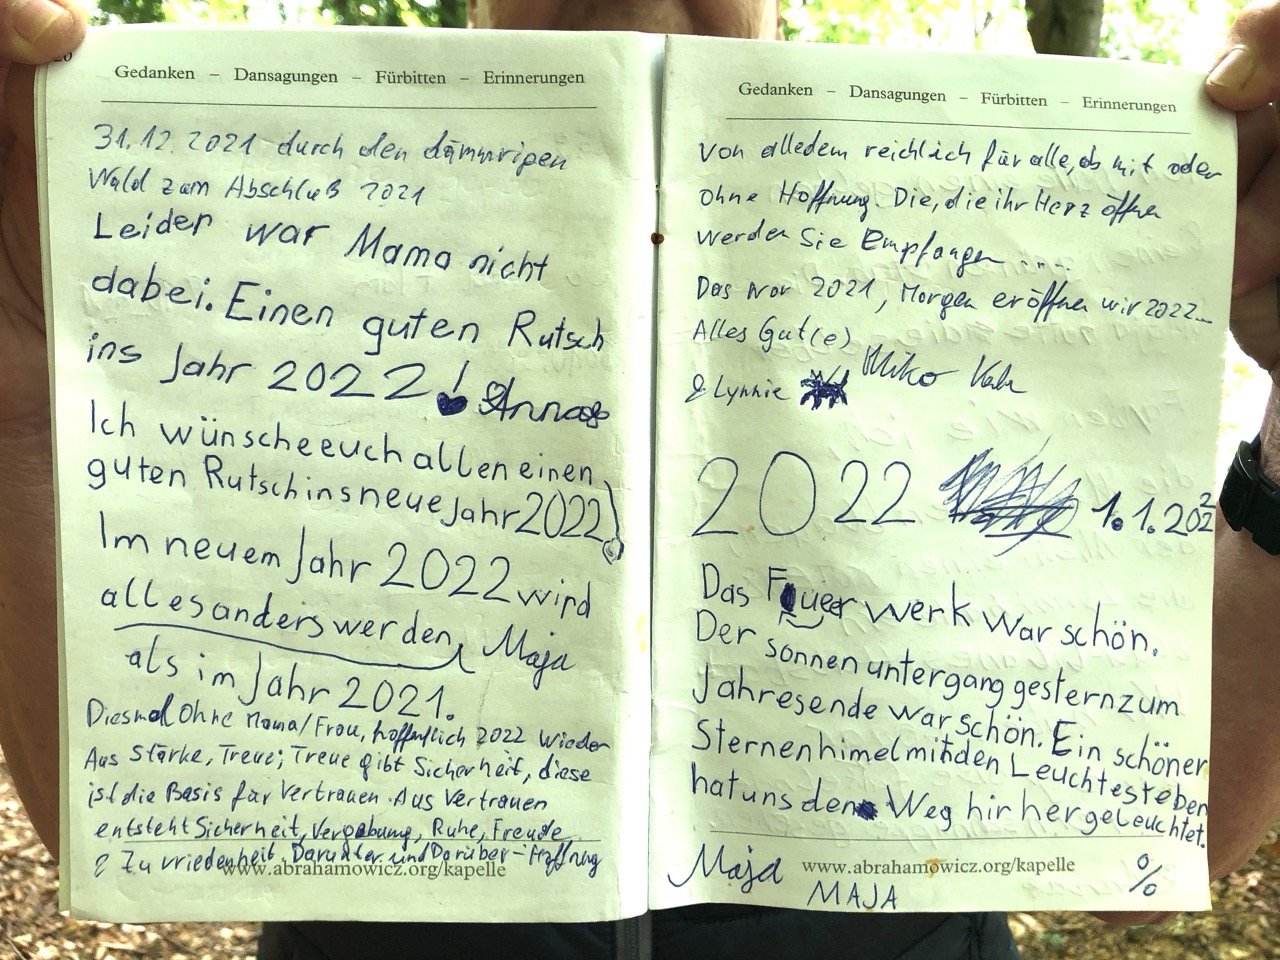 20
Gedanken – Dansagungen – Fürbitten – Erinnerungen
31.12.2021 durch den dämmrigen
Wald zum Abschluß 2021
Leider war Mama nicht
dabei. Einen guten Rutsch
ins Jahr 2022!
Anna
Ich wünsche euch allen einen
guten Rutsch ins neue Jahr 2022!
Im neuem Jahr 2022 wird
alles anders werden, Maja
als im Jahr 2021.
Diesmal Ohne Mama/Frau, hoffentlich 2022 wieder
Aus Stärke, Treue; Treue gibt Sicherheit, diese
ist die Basis für Vertrauen. Aus Vertrauen
entsteht Sicherheit, Vergebung, Ruhe, Freude
& Zu vriedenheit, Darunter und Darüber – Hoffnung
www.abrahamowicz.org/kapelle
Gedanken – Dansagungen – Fürbitten – Erinnerungen
von alledem reichlich für alle, ob mit oder
ohne Hoffnung. Die, die ihr Herz öffnen
werden Sie Empfangen ....
Das war 2021, Morgen eröffnen wir 2022...
Alles Gut(e)
& Lynnie
2022 1.1.2022
Das Feuer werk war schön.
Der sonnenuntergang gestern zum
Jahresende war schön. Ein schöner
Sternenhimel mit den Leuchtesteben
hat uns den Weg hir her geleuchtet.
Maja MAJA
www.abrahamowicz.org/kapelle
%